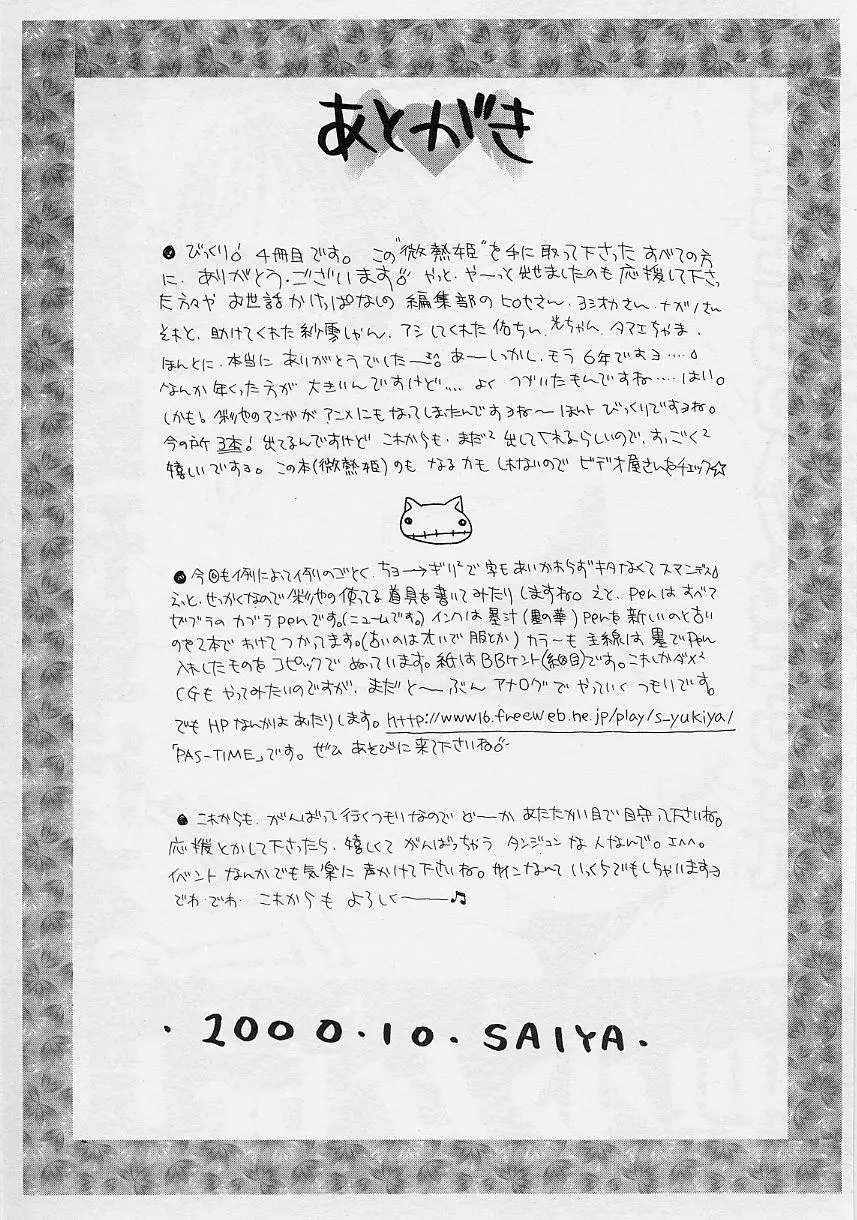 あとがき
● びっくり♪ 4冊目です。 この"微熱姫"を手に取って下さった すべての方
に、ありがとう・ございます♪ やっと、や〜っと 出せましたのも 応援して下さっ
た方々や お世話かけっぱなしの 編集部のヒロセさん、ヨシオカさん、ナガノさん
それと、助けてくれた 紗雪しゃん、アシしてくれた 佑ちぃ、光ちゃん、タマエちゃま、
ほんとに、本当に ありがとうでした― あ―しっかし、もう 6年ですョ‥‥。
なんか 年くった方が 大きいんですけど‥‥ よく つづいたもんですね‥‥ はい。
しかも! 彩也のマンガが アニメにもなってしまったんですョね〜 ほんと びっくりですョね。
今の所 3本! 出てるんですけど これからも、まだ² 出してくれるらしいので、すっごく²
嬉しいですョ。 この本(微熱姫)のも なるかも しれないので ビデオ屋さんをチェック☆
● 今回も例によって例のごとく、ちョ―→ギリ²で 字も あいかわらずキタなくて スマンデス♪
えっと、せっかくなので 彩也の使ってる 道具を書いてみたり しますね。えと、Penは すべて
ゼブラの カブラ penです。(ニュームです。) インクは 墨汁(墨の華) Penを 新しいのと古い
のやて2本で わけて つかってます。(古いのは オいで 服とか) カラーも 主線は 墨で Pen
入れしたものを コピックで ぬっています。紙は BBケント(細目)です。これしかダメ²
CGも やってみたいのですが、まだ と〜 ぶん アナログで やっていく つもりです。
でも HPなんかは あったりします。http://www16.freeweb.ne.jp/play/s_yukiya/
「PAS-TIME」です。ぜひ あそびに来て下さいね♪
● これからも、がんばって行くつもりなので ど〜か あたたかい目で 見守って下さいね。
応援とかして下さったら、嬉しくて がんばっちゃう タンジュンな 人なんで。エヘヘ。
イベント なんかでも 気楽に 声かけて下さいね。サインなんて いくらでもしちゃいますョ
でわ・でわ これからも よろしく――♫
・2000・10・SAIYA・